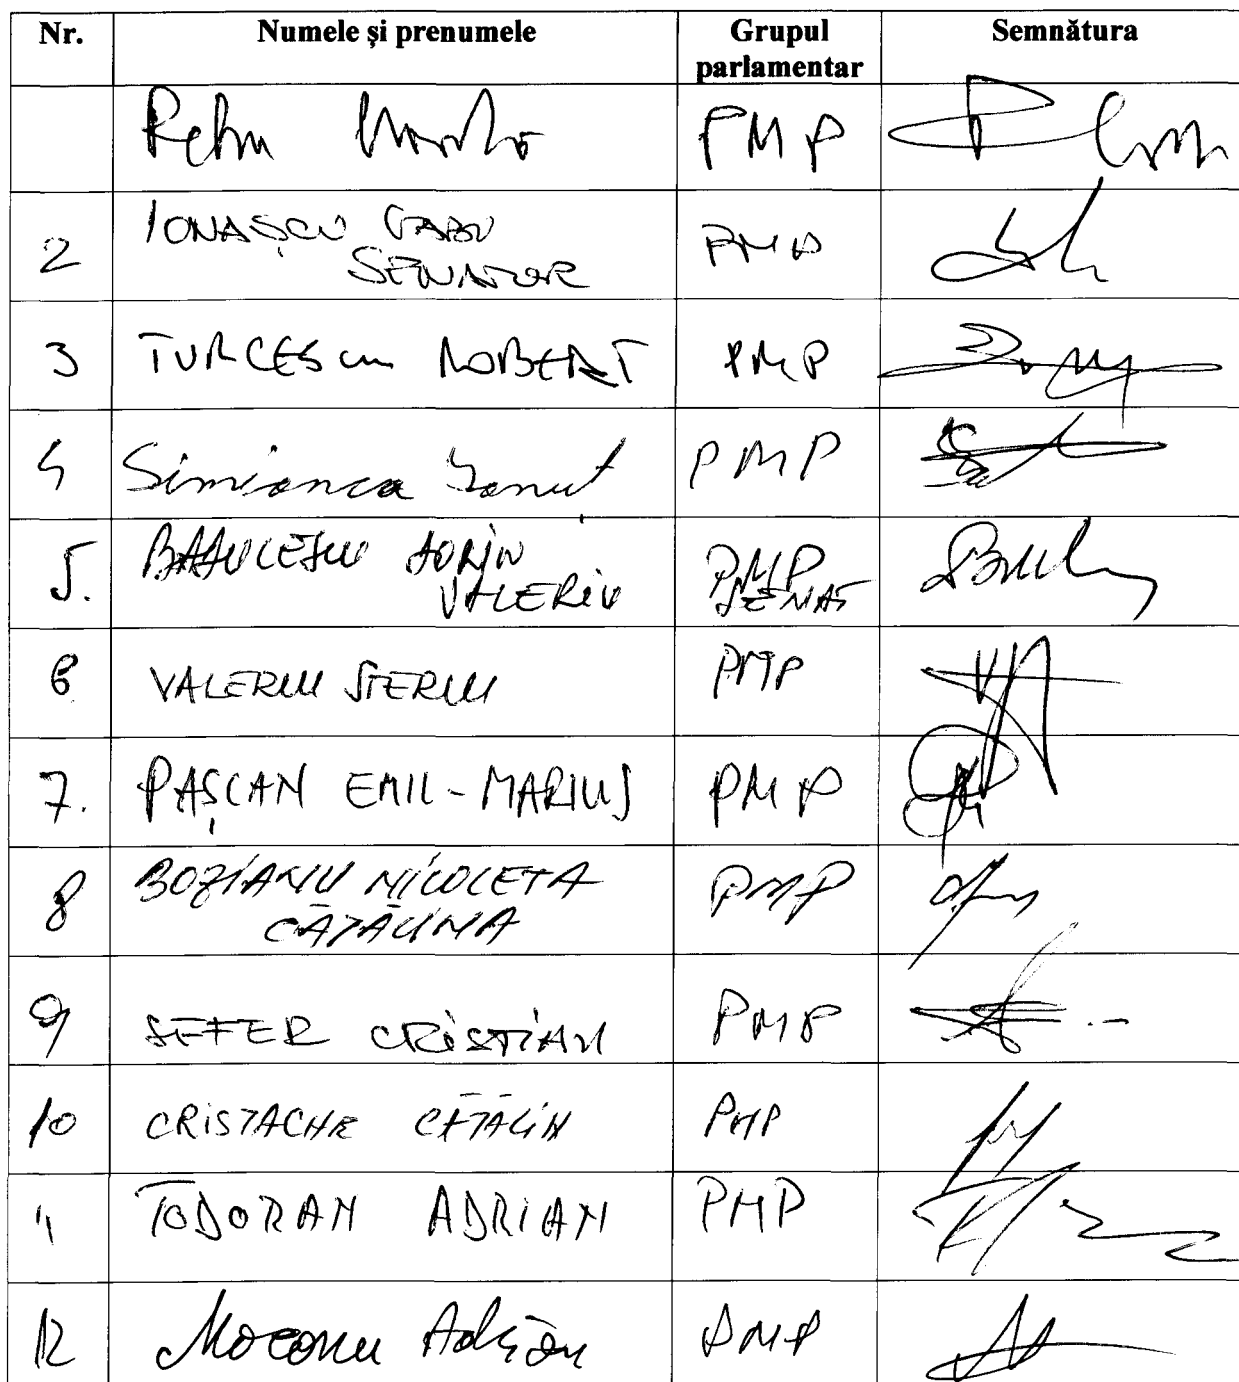 Nr. Numele și prenumele Grupul parlamentar Semnătura
Petru PMP
2 IONAȘCU GABI SENATOR PMP
3 TURCESCU ROBERT PMP
4 Simionca Ionuț PMP
5. BĂDULESCU DORIN VALERIU PMP SENAT
6 VALERIU STERIU PMP
7. PAȘCAN EMIL-MARIUS PMP
8 BOZIANU NICOLETA CĂTĂLINA PMP
9 SEFER CRISTIAN PMP
10 CRISTACHE CĂTĂLIN PMP
11 TODORAN ADRIAN PMP
12 Mocanu Adrian PMP